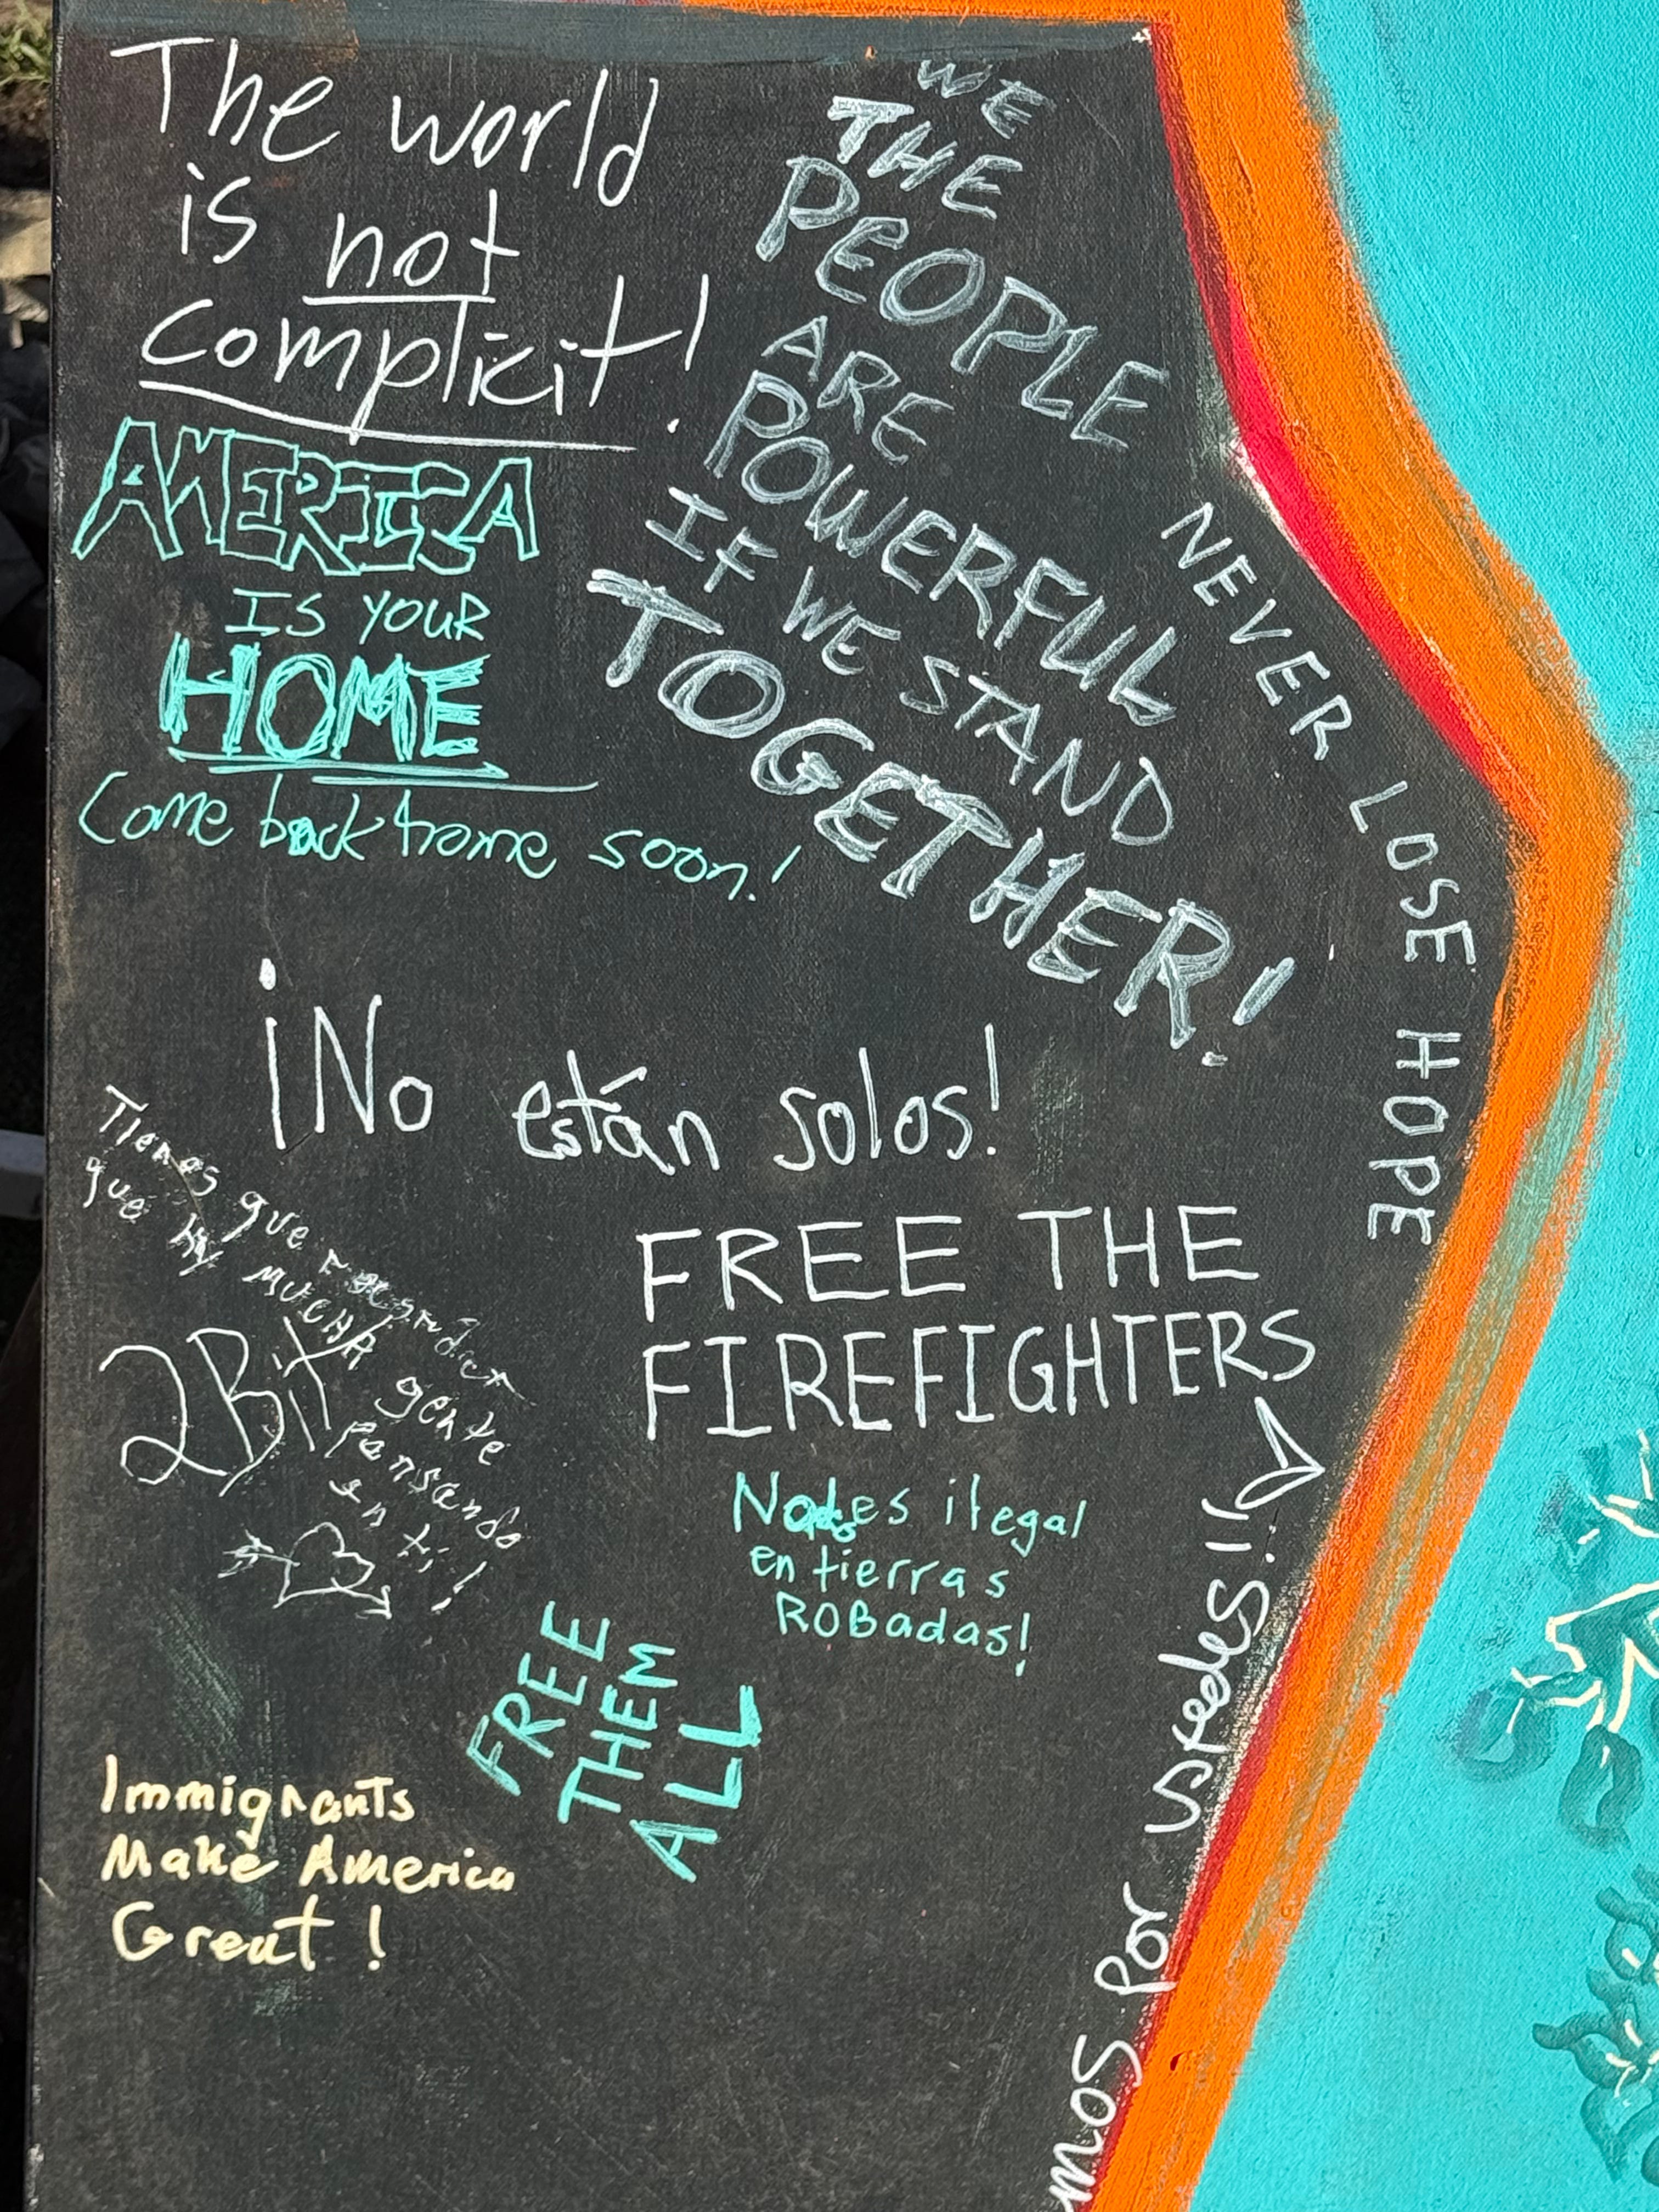 The world
is not
complicit!
WE
THE
PEOPLE
ARE
POWERFUL
IF WE STAND
TOGETHER!
NEVER LOSE HOPE
AMERICA
IS YOUR
HOME
Come back home soon!
¡No están solos!
Tienes que recordar
que hy MUCHA gente
pensando
en ti!
2Bit
FREE THE
FIREFIGHTERS
Nades ilegal
en tierras
ROBadas!
FREE
THEM
ALL
Immigrants
Make America
Great!
mos por ustedes!!